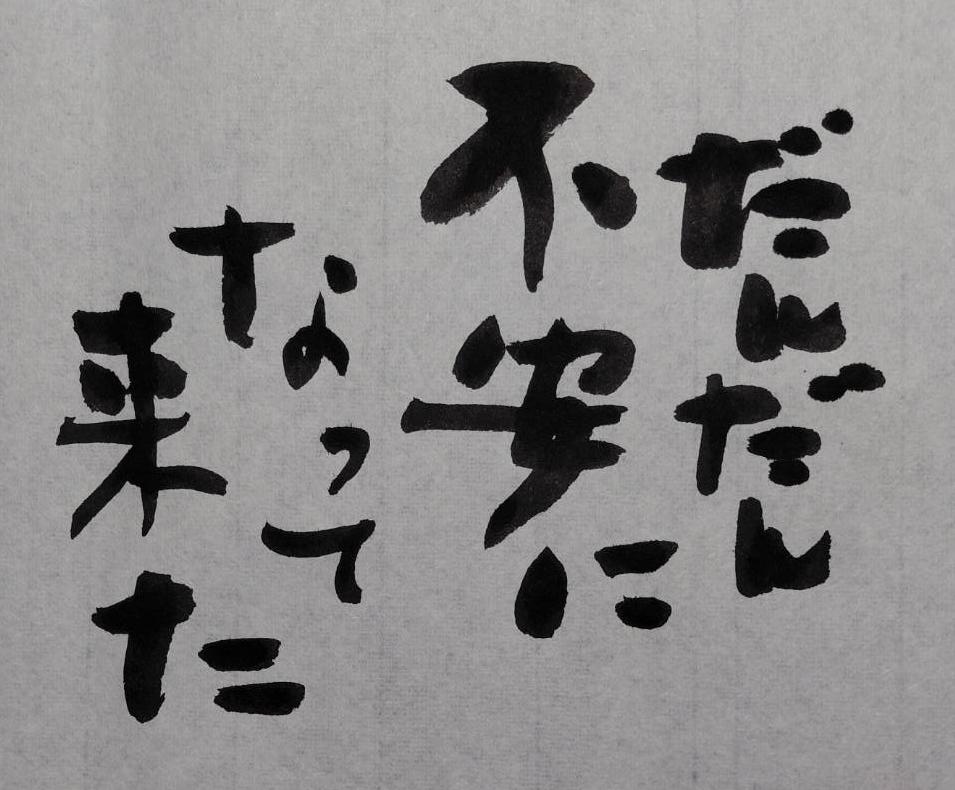 だんだん
不安に
なって
来た